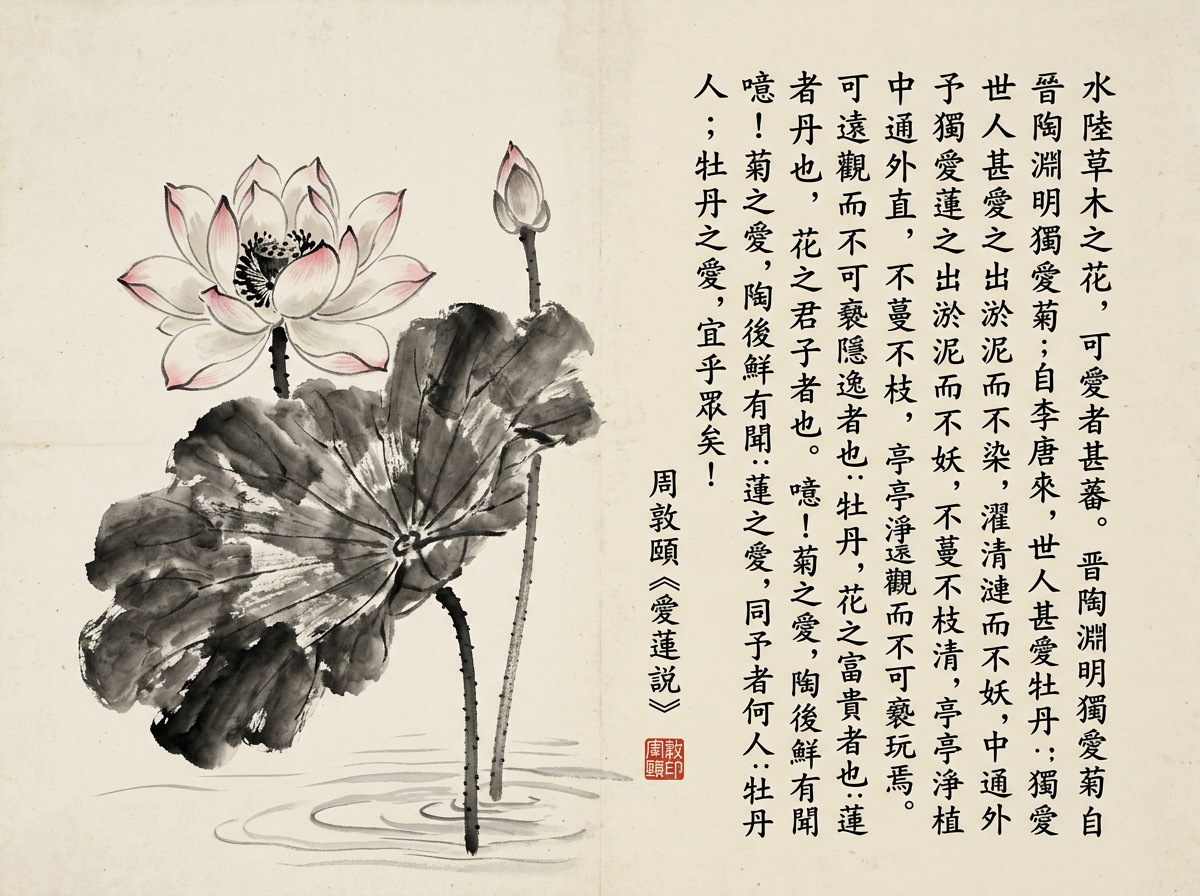 水陸草木之花，可愛者甚蕃。晋陶淵明獨愛菊自
晉陶淵明獨愛菊；自李唐來，世人甚愛牡丹：；獨愛
世人甚愛之出淤泥而不染，濯清漣而不妖，中通外
予獨愛蓮之出淤泥而不妖，不蔓不枝清，亭亭淨植
中通外直，不蔓不枝，亭亭淨遠觀而不可褻玩焉。
可遠觀而不可褻隱逸者也：牡丹，花之富貴者也：蓮
者丹也，花之君子者也。噫！菊之愛，陶後鮮有聞
噫！菊之愛，陶後鮮有聞：蓮之愛，同予者何人：牡丹
人；牡丹之愛，宜乎眾矣！
周敦頤《愛蓮説》
敦印